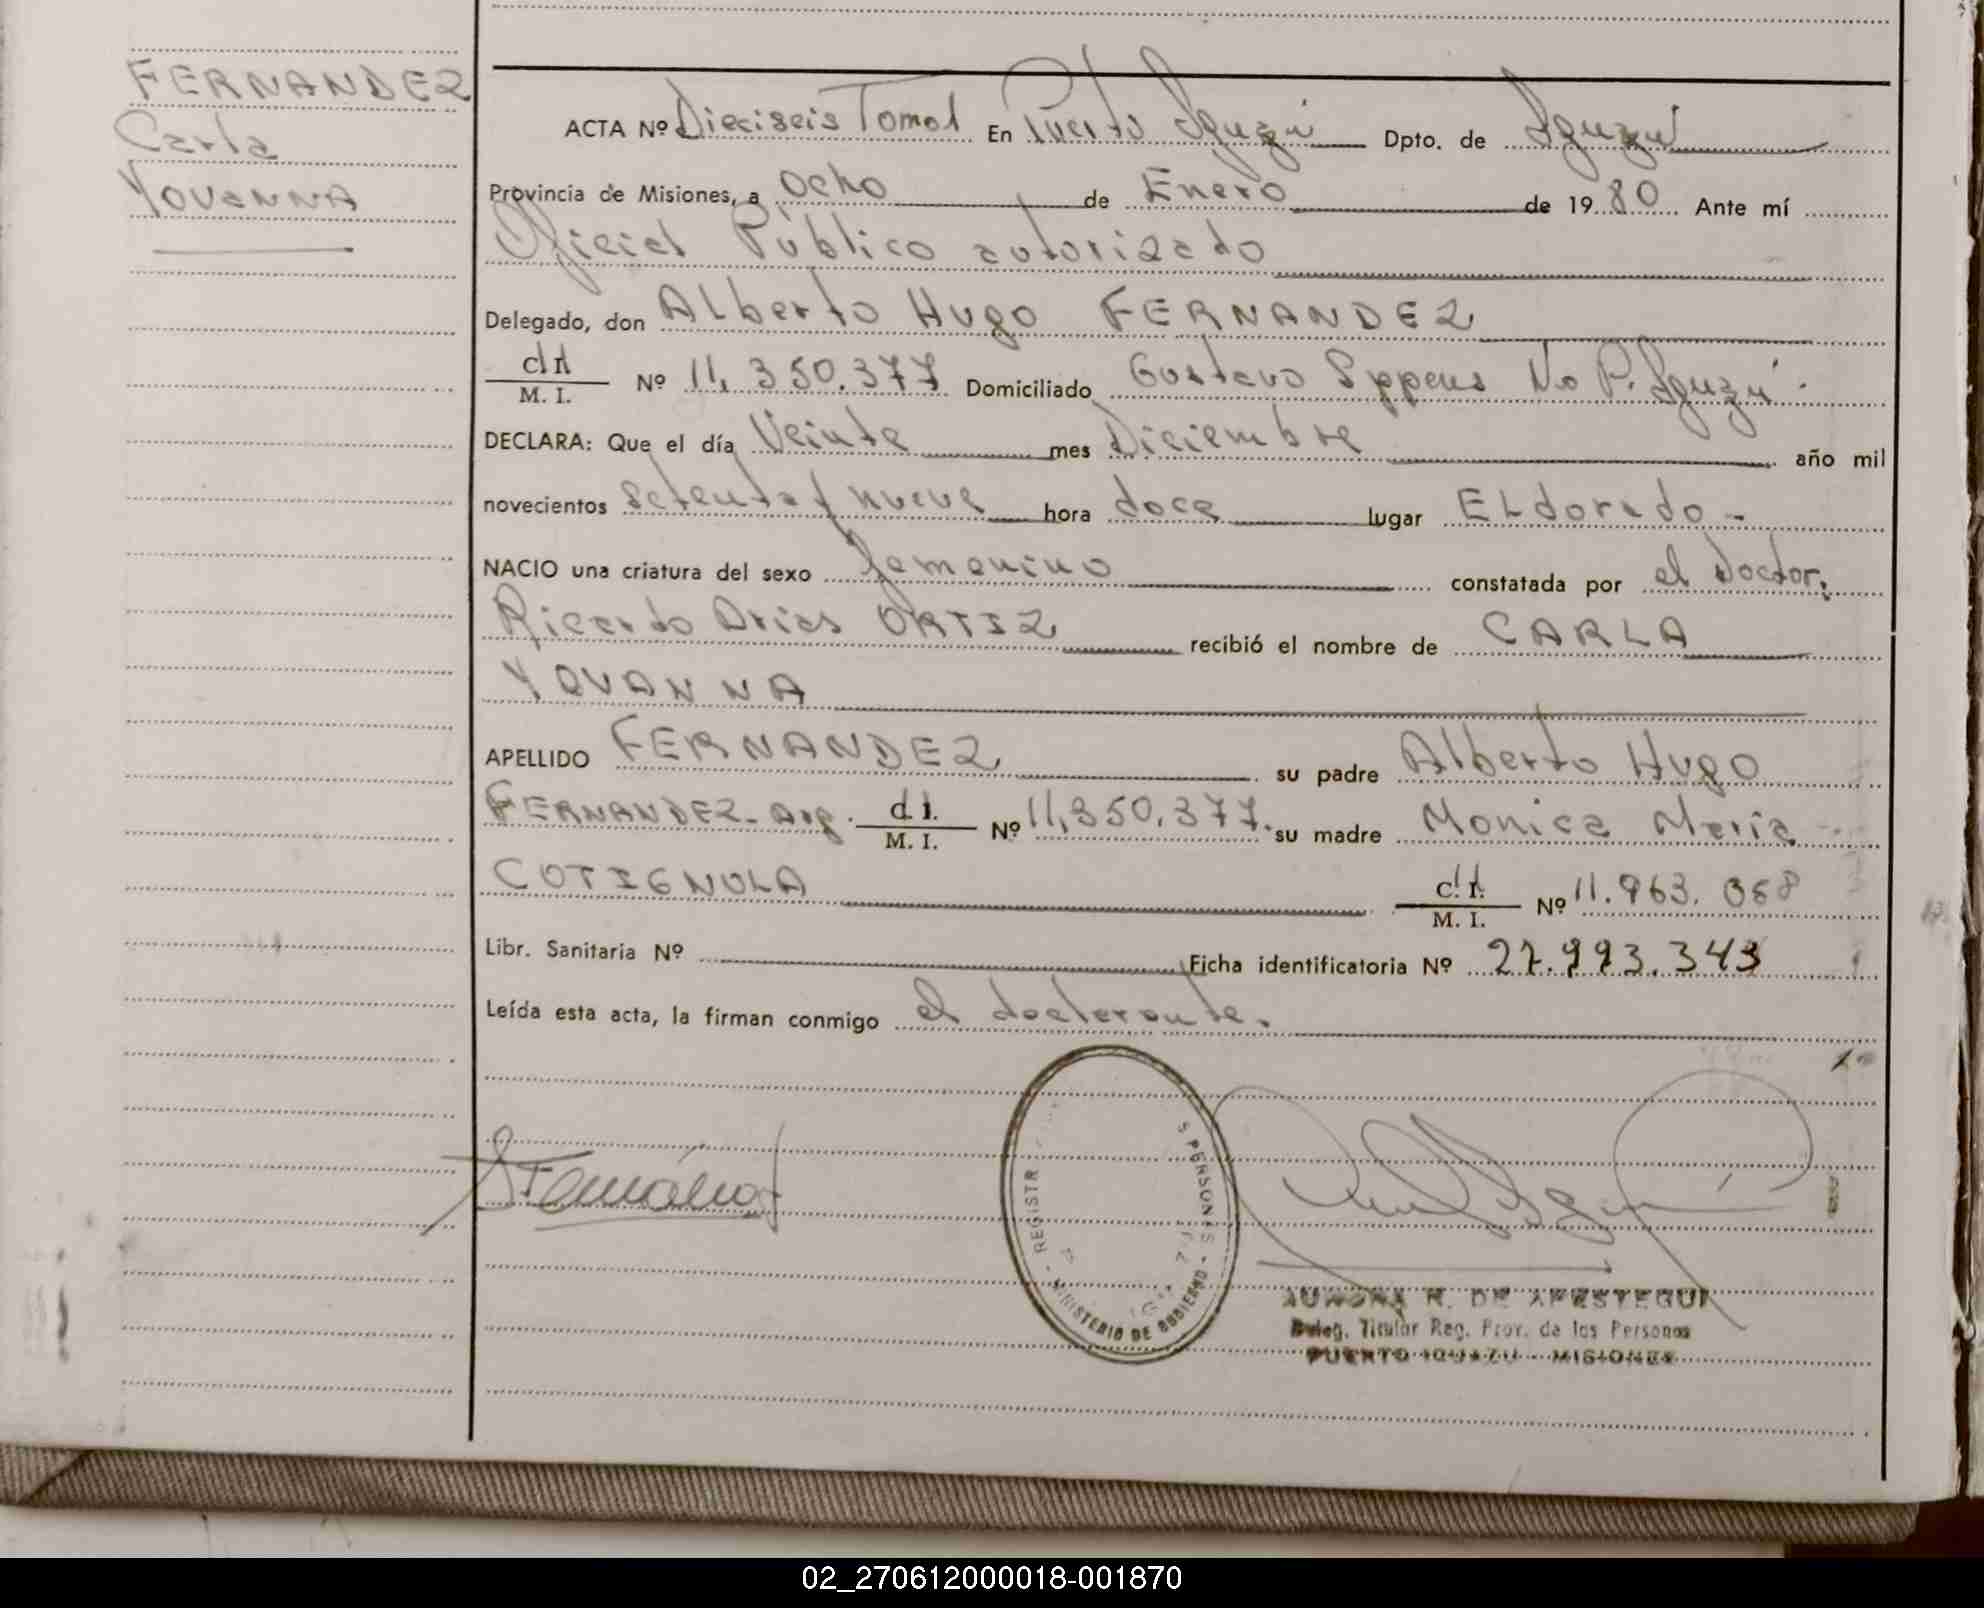 FERNANDEZ
Carla
YOVANNA
ACTA Nº Dieciseis Tomo I En Puerto Iguazú Dpto. de Iguazú
Provincia de Misiones, a ocho de Enero de 1980 Ante mí
Oficial Público autorizado
Delegado, don Alberto Hugo FERNANDEZ
M. I. Nº 11,350.377 Domiciliado Gustavo Eppens Nº P. Iguazú
DECLARA: Que el día Veinte mes Diciembre año mil
novecientos setenta y nueve hora doce lugar ELdorado -
NACIO una criatura del sexo femenino constatada por el Doctor,
Ricardo Arias ORTIZ recibió el nombre de CARLA
YOVANNA
APELLIDO FERNANDEZ su padre Alberto Hugo
FERNANDEZ - Arg. d.I. M. I. Nº 11,350.377. su madre Monica Maria
COTIGNOLA M. I. Nº 11.963.
Libr. Sanitaria Nº Ficha identificatoria Nº 27.993.343
Leída esta acta, la firman conmigo el declarante.
REGISTR PERSONAS - MINISTERIO DE GOBIERNO -
AURORA R. DE APESTEGUI
Deleg. Titular Reg. Prov. de las Personas
PUERTO IGUAZU - MISIONES
02_270612000018-001870